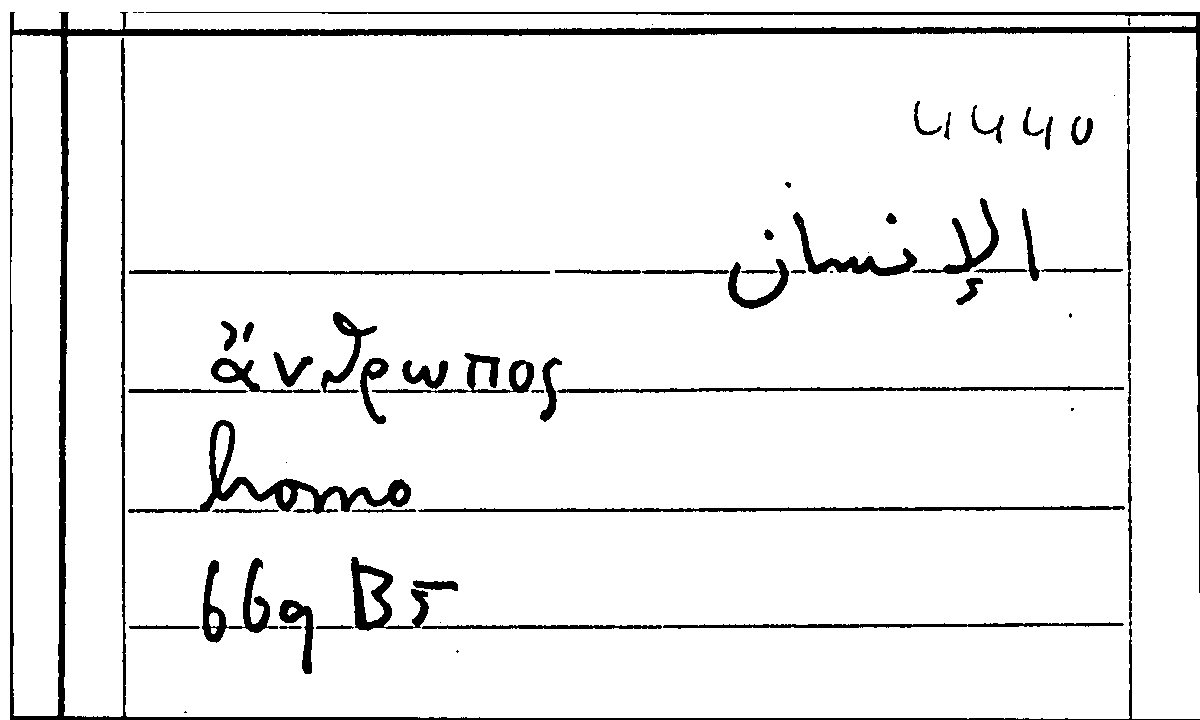 4440
الإنسان
ἄνθρωπος
homo
669 B5